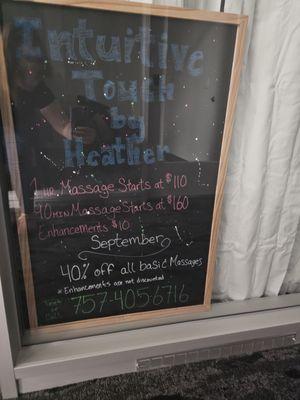 Intuitive
Touch
by
Heather
1 HR. Massage Starts at $110
90 min Massage Starts at $160
Enhancements $10
September
40% off all basic Massages
* Enhancements are not discounted
Text
or
Call
757-405-6716